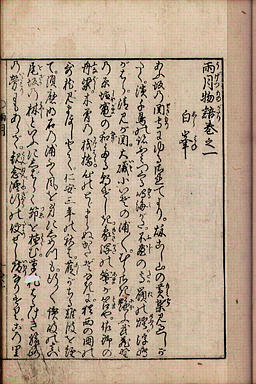 雨月物語巻之一
白峯
あふ坂の関守にゆるされてより。秋こし山の黄葉見過し
がたく。濱千鳥の跡ふみつくる鳴海がた。不尽の高嶺の煙。浮嶋
がはら。清見が関。大磯小いその浦々。むらさき艶ふ武蔵野の原。塩
竃の和たる朝げしき。象潟の蜑が苫や。佐野の
舟梁。木曽の桟橋。心のとゞまらぬかたぞなきに。猶西の国の
哥枕見まほしとて。仁安三年の秋は。葭がちる難波を経
て。須磨明石の浦ふく風を身にしめつも。行々讃岐の真
尾坂の林といふにしばらく笻を植む。草枕はるけき旅路
の労にもあらで。観念修行の便せし庵なりけり。この里